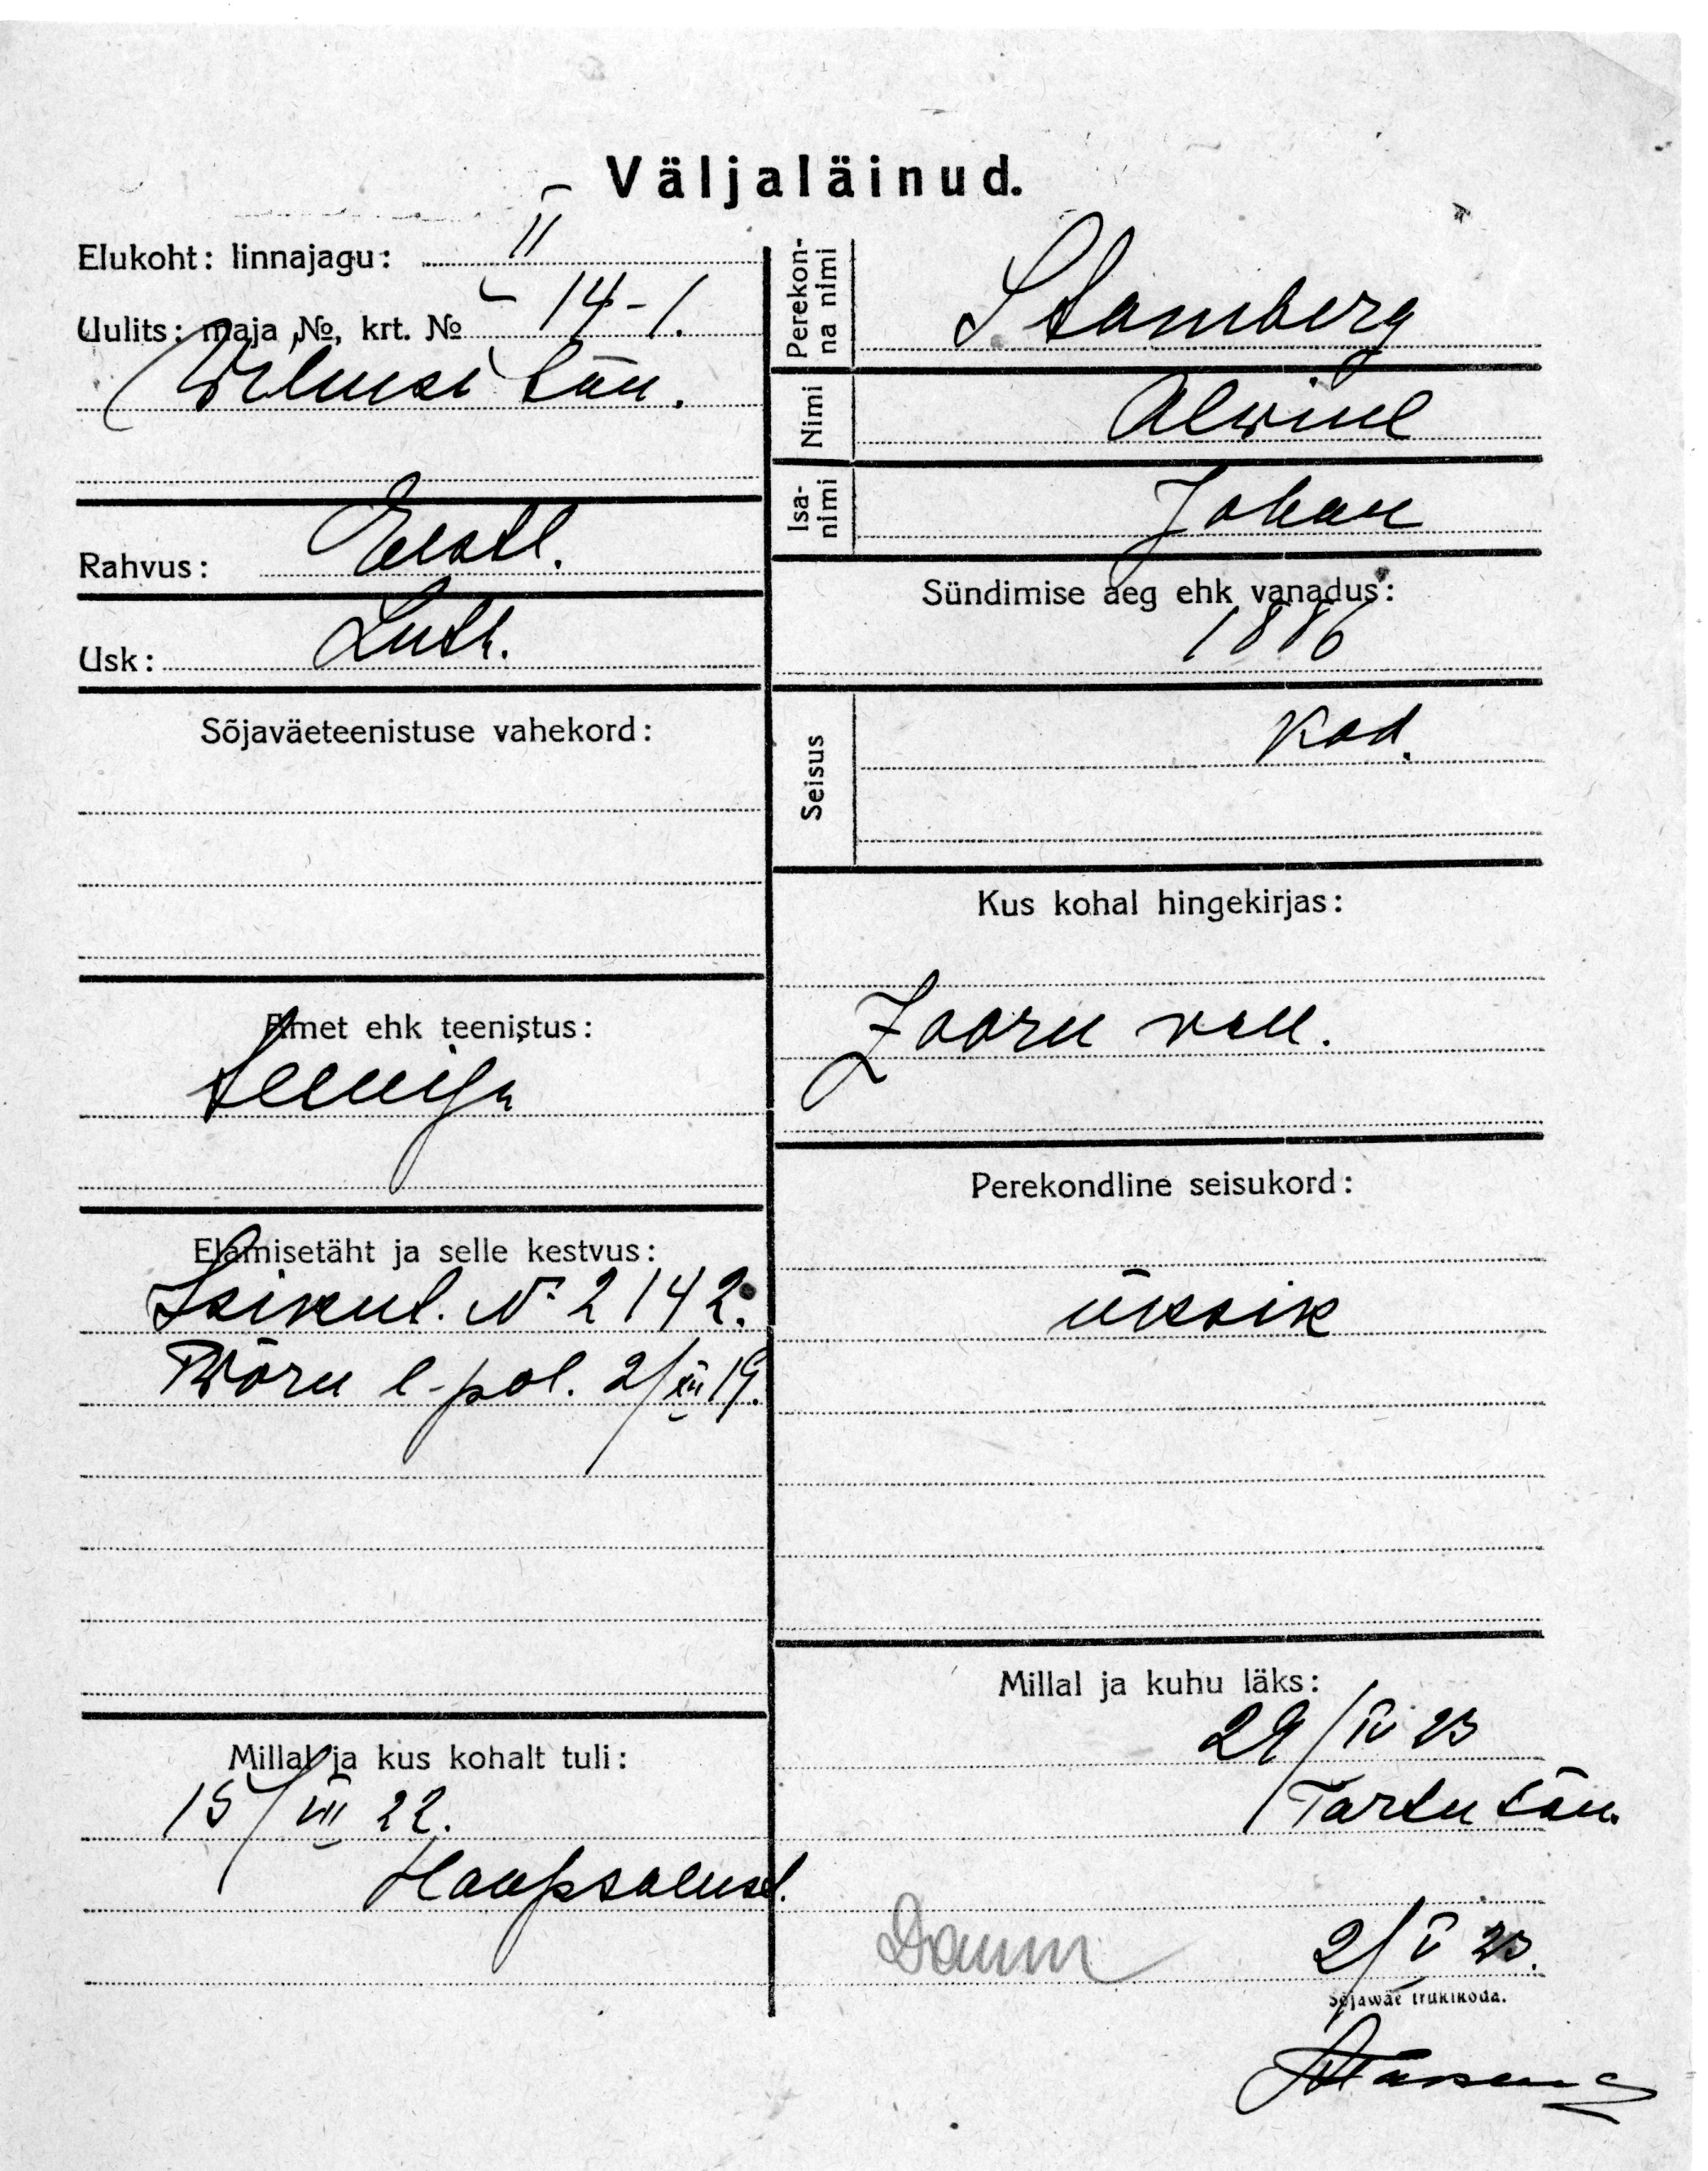 Väljaläinud.
Elukoht: linnajagu: II
Uulits: maja №, krt. № 14-1.
Wilmsi tän.
Rahvus: Eestl.
Usk: Luth.
Sõjaväeteenistuse vahekord:
Amet ehk teenistus:
teenija
Elamisetäht ja selle kestvus:
Isikut. № 2142.
Wõru l-pol. 2/XII 19.
Millal ja kus kohalt tuli:
15/VII 22.
Haapsalust.
Perekon-
na nimi Stamberg
Nimi Alwine
Isa-
nimi Johan
Sündimise aeg ehk vanadus:
1886
Seisus kod.
Kus kohal hingekirjas:
Zooru vall.
Perekondline seisukord:
üksik
Millal ja kuhu läks:
29/IV 23
Tartu tän.
2/V 23.
Sõjawäe trükikoda.